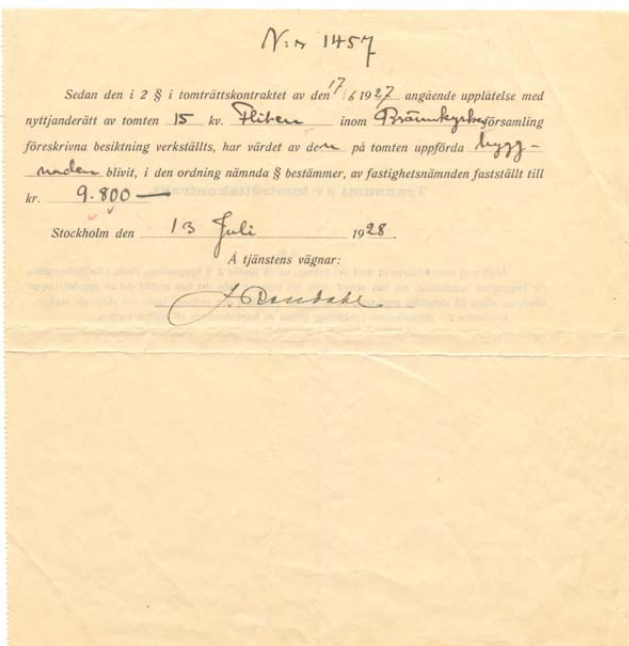 N:r 1457
Sedan den i 2 § i tomträttskontraktet av den 17/6 1927 angående upplåtelse med
nyttjanderätt av tomten 15 kv. Fliten inom Brännkyrka församling
föreskrivna besiktning verkställts, har värdet av den på tomten uppförda bygg-
naden blivit, i den ordning nämnda § bestämmer, av fastighetsnämnden fastställt till
kr. 9.800 —
Stockholm den 13 Juli 1928.
Å tjänstens vägnar: